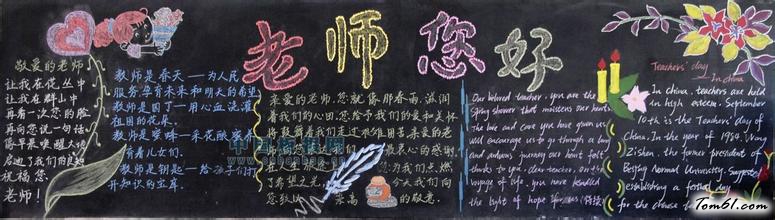 老师您好
敬爱的老师
让我在花丛中
让我在群山中
再看一次您的脸
再向您说一句话
像早晨唤醒大地
启迪了我们的良知
祝福您
老师!
教师是春天——为人民
服务孕育未来和明天的希望
教师是园丁——用心血浇灌
祖国的花朵.
教师是蜜蜂——采花酿蜜养
育着儿女们.
教师是钥匙——给孩子们打
开知识的宝库.
亲爱的老师,您就像那春雨,滋润
着我们的心田,您给予我们的爱和关怀
将鼓舞着我们走过艰难困苦亲爱的老
师
在人生旅途
了希望之光, 今天我们向
您致以 崇高 的敬意.
Our beloved teacher, you are the
spring shower that moistens our hearts
The love and care you have given us
will encourage us to go through a long
and arduous journey our heart felt
thanks to you, dear teacher, on the
voyage of life, you have kindled
the light of hope for
Teachers' day
in China
In China, teachers are held
in high esteem. September
10th is the Teachers' day of
China. In the year of 1984. Wang
Zishen, the former president of
Beijing Normal University, Suggested
establishing a formal day
for the chinese
Tom61.com